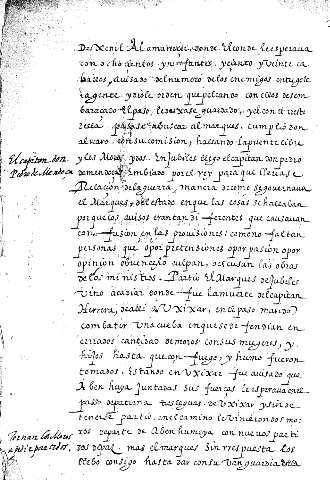 Dexenil Alamarexir, donde el conde le esperaua
con ochocientos ynfantes, yciento y veinte ca
ballos, auisado del numero de los enemigos entregole
la gente y diole orden que peleando con ellos desem
baraçado el paso, le dexase guardado, y el con el resto
pasase abuscar al marques, cumplio don
alvaro con su comision, hallando la puente libre
y los Moros ydos. En Jubiles llego el capitan don pedro
El capitan don
Pedro de Mendoça
de mendoça embiado por el rey para que lleuase
Relacion de la guerra, manera de como se gouernaua
el Marques, del estado en que las cosas se hallauan
por que los auisos eran tan diferentes que causauan
confusion en las prouisiones: como no faltan
personas que o por pretensiones o por pasion o por
opinion o buen çelo culpan, o escusan las obras
de los ministros. Partio El Marques de Jubiles
vino a cadiar donde fue la muerte del capitan
Herrera, de alli a Vxixar, en el paso mando
combatir una cueba en que se defendian en
cerrados cantidad de moros con sus mujeres, y
hijos hasta que con fuego, y humo fueron
tomados. Estando en Vxixar fue auisado que
Aben huya juntadas sus fuerças le esperaua en el
paso de paterna tres leguas de Vxixar y sin de
tenerse partio. en el camino le vinieron dos mo
ros de parte de Aben humeya con nuevos parti
dos de paz. mas el marques sin respuesta los
llebo consigo hasta dar con su vanguardia en la